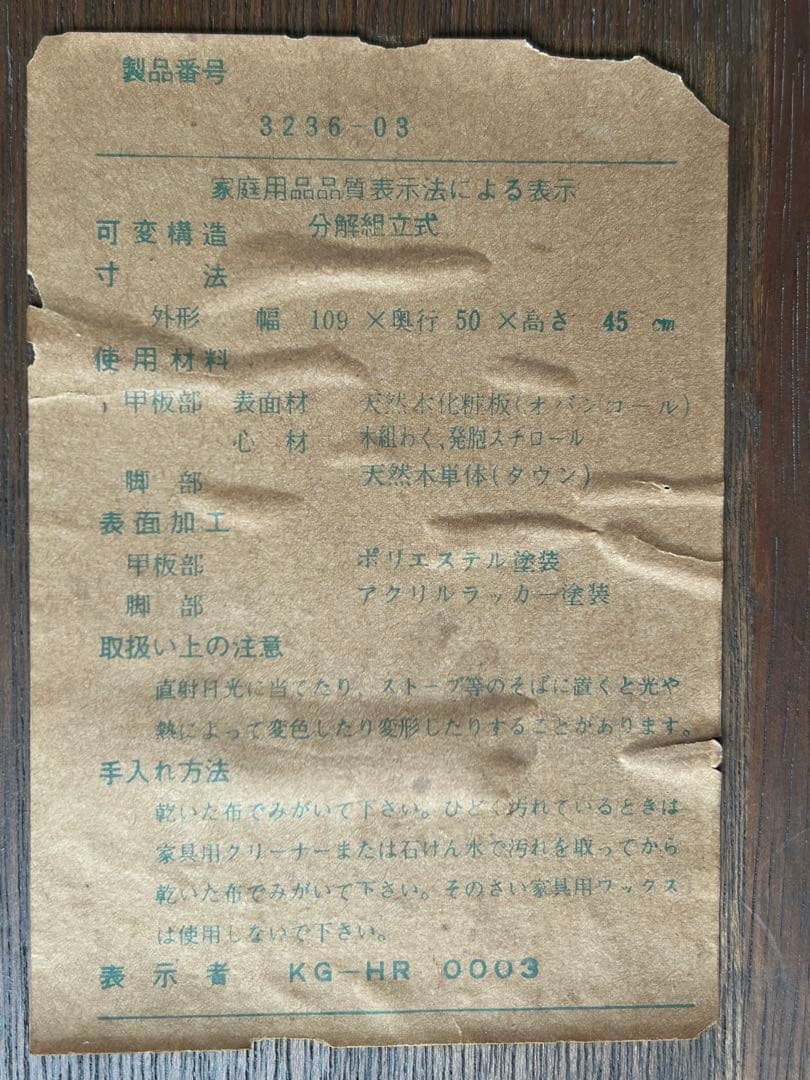 製品番号
3236-03
家庭用品品質表示法による表示
可変構造 分解組立式
寸法
外形 幅 109 ×奥行 50 ×高さ 45 cm
使用材料
甲板部 表面材 天然木化粧板(オバンコール)
心材 木組わく、発胞スチロール
脚部 天然木単体(タウン)
表面加工
甲板部 ポリエステル塗装
脚部 アクリルラッカー塗装
取扱い上の注意
直射日光に当てたり、ストーブ等のそばに置くと光や
熱によって変色したり変形したりすることがあります。
手入れ方法
乾いた布でみがいて下さい。ひどく汚れているときは
家具用クリーナーまたは石けん水で汚れを取ってから
乾いた布でみがいて下さい。そのさい家具用ワックス
は使用しないで下さい。
表示者 KG-HR 0003